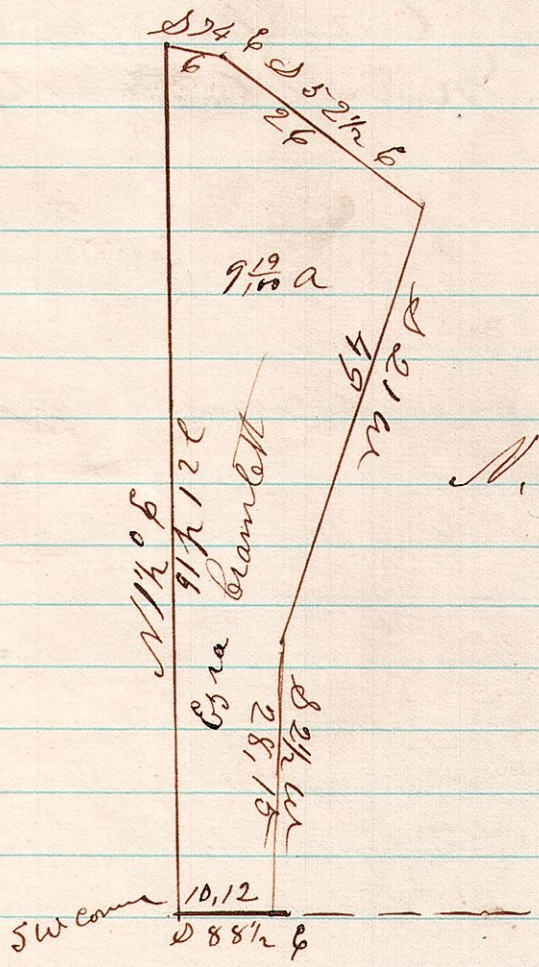 S 74 E
6
S 52½ E
26
9 19/100 a
S 21 W
49
N.
N 1½° E
91 p 12 l
Esra Bramlett
S 2½ W
28,15
10,12
S W Corner
S 88½ E